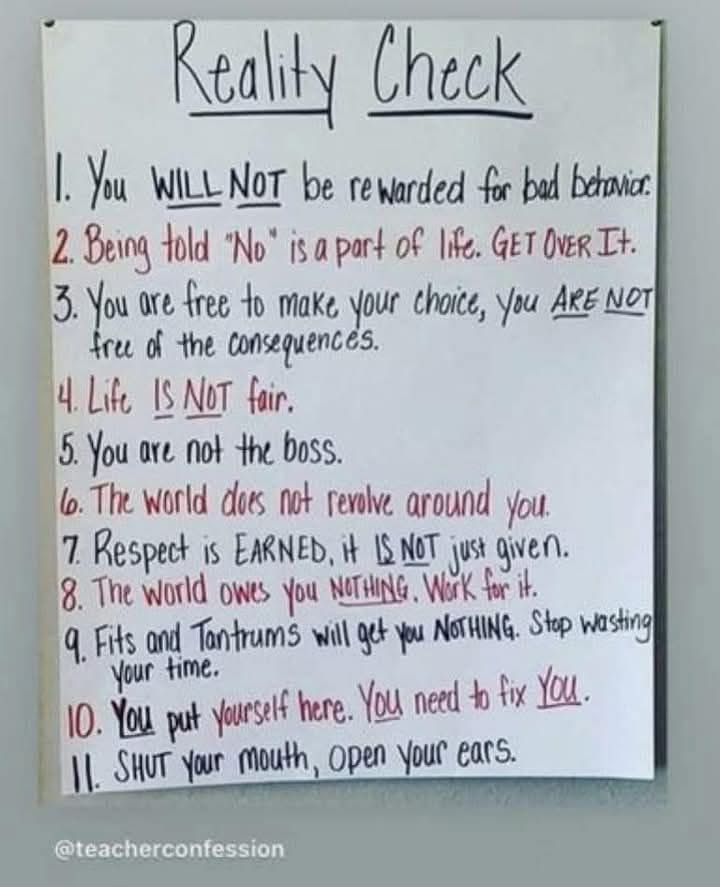 Reality Check
1. You WILL NOT be rewarded for bad behavior.
2. Being told "No" is a part of life. GET OVER It.
3. You are free to make your choice, you ARE NOT
free of the consequences.
4. Life IS NOT fair.
5. You are not the boss.
6. The world does not revolve around you.
7. Respect is EARNED, it IS NOT just given.
8. The World owes you NOTHING. Work for it.
9. Fits and Tantrums will get you NOTHING. Stop wasting
your time.
10. You put yourself here. You need to fix You.
11. SHUT your mouth, open your ears.
@teacherconfession